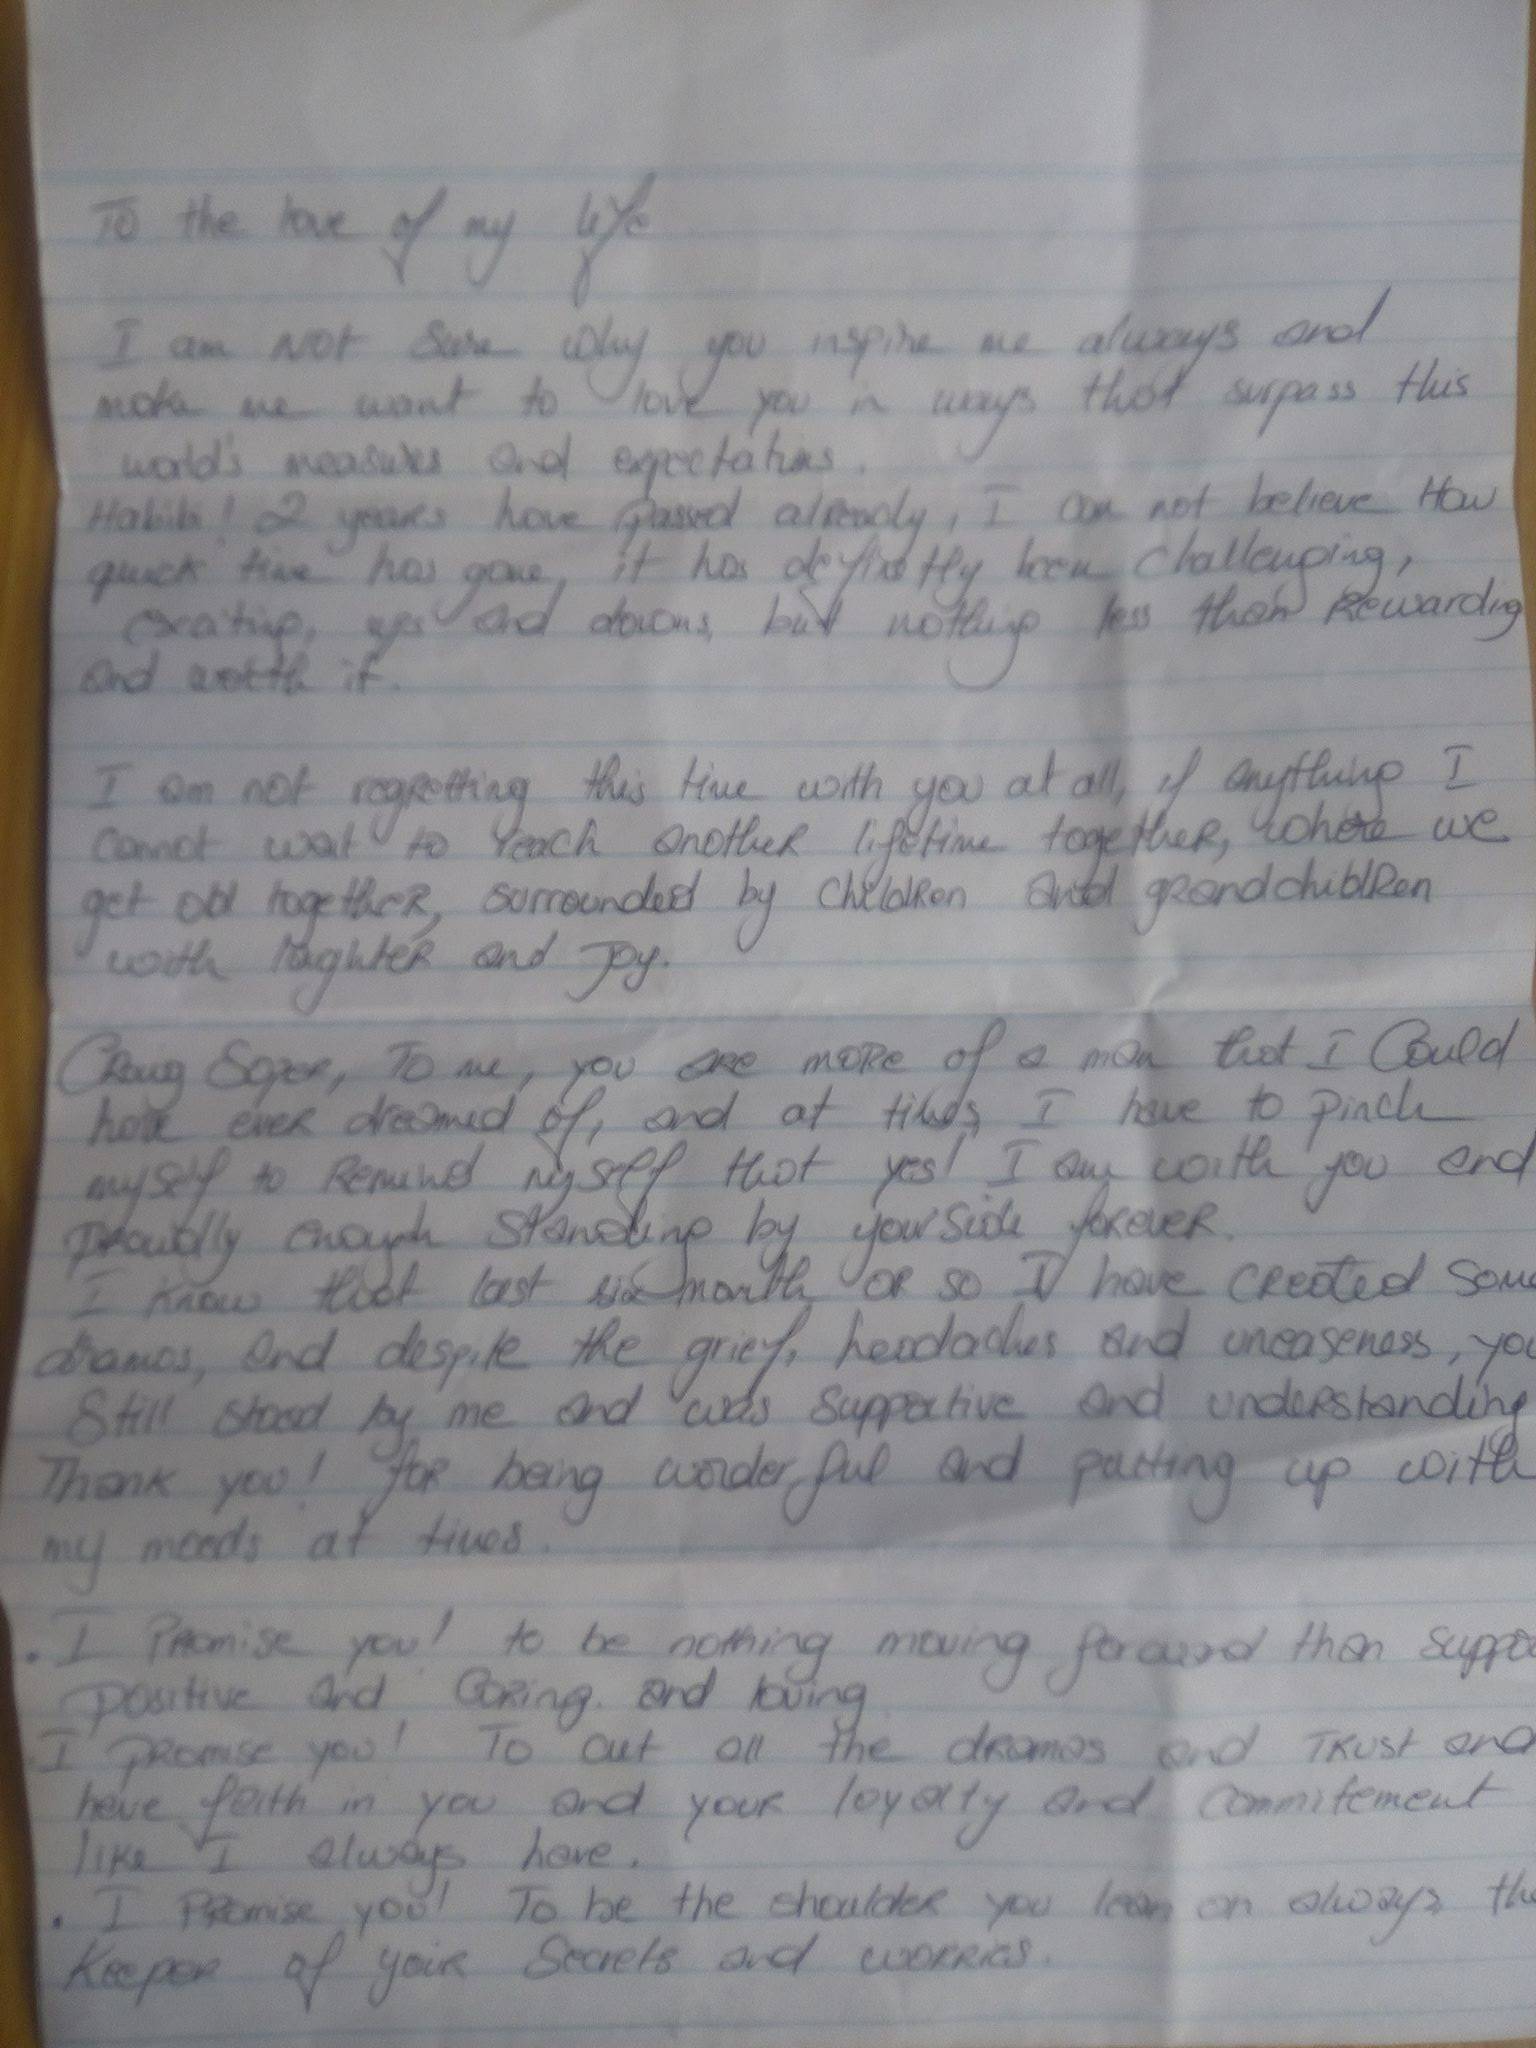 To the love of my life
I am NOT Sure why you inspire me always and
make me want to love you in ways that surpass this
world's measures and expectations.
Habibi! 2 years have passed already, I can not believe How
quick time has gone, it has definetly been challenging,
exciting, ups and downs, but nothing less than Rewarding
and worth it.
I am not regretting this time with you at all, if anything I
cannot wait to reach another lifetime together, where we
get old together, surrounded by children and grandchildren
with laughter and Joy.
Craig To me, you are more of a man that I Could
have ever dreamed of, and at times I have to pinch
myself to Remind myself that yes! I am with you and
proudly enough standing by your side forever.
I know that last six month or so I have created some
dramas, and despite the grief, headaches and uneaseness, you
Still stood by me and was supportive and understanding
Thank you! for being wonderful and putting up with
my moods at times.
. I Promise you! to be nothing moving forward than
positive and Caring. and loving
. I promise you! To cut all the dramas and TRUST and
have faith in you and your loyalty and commitement
like I always have.
. I Promise you! To be the shoulder you lean on always the
Keeper of your Secrets and worries.